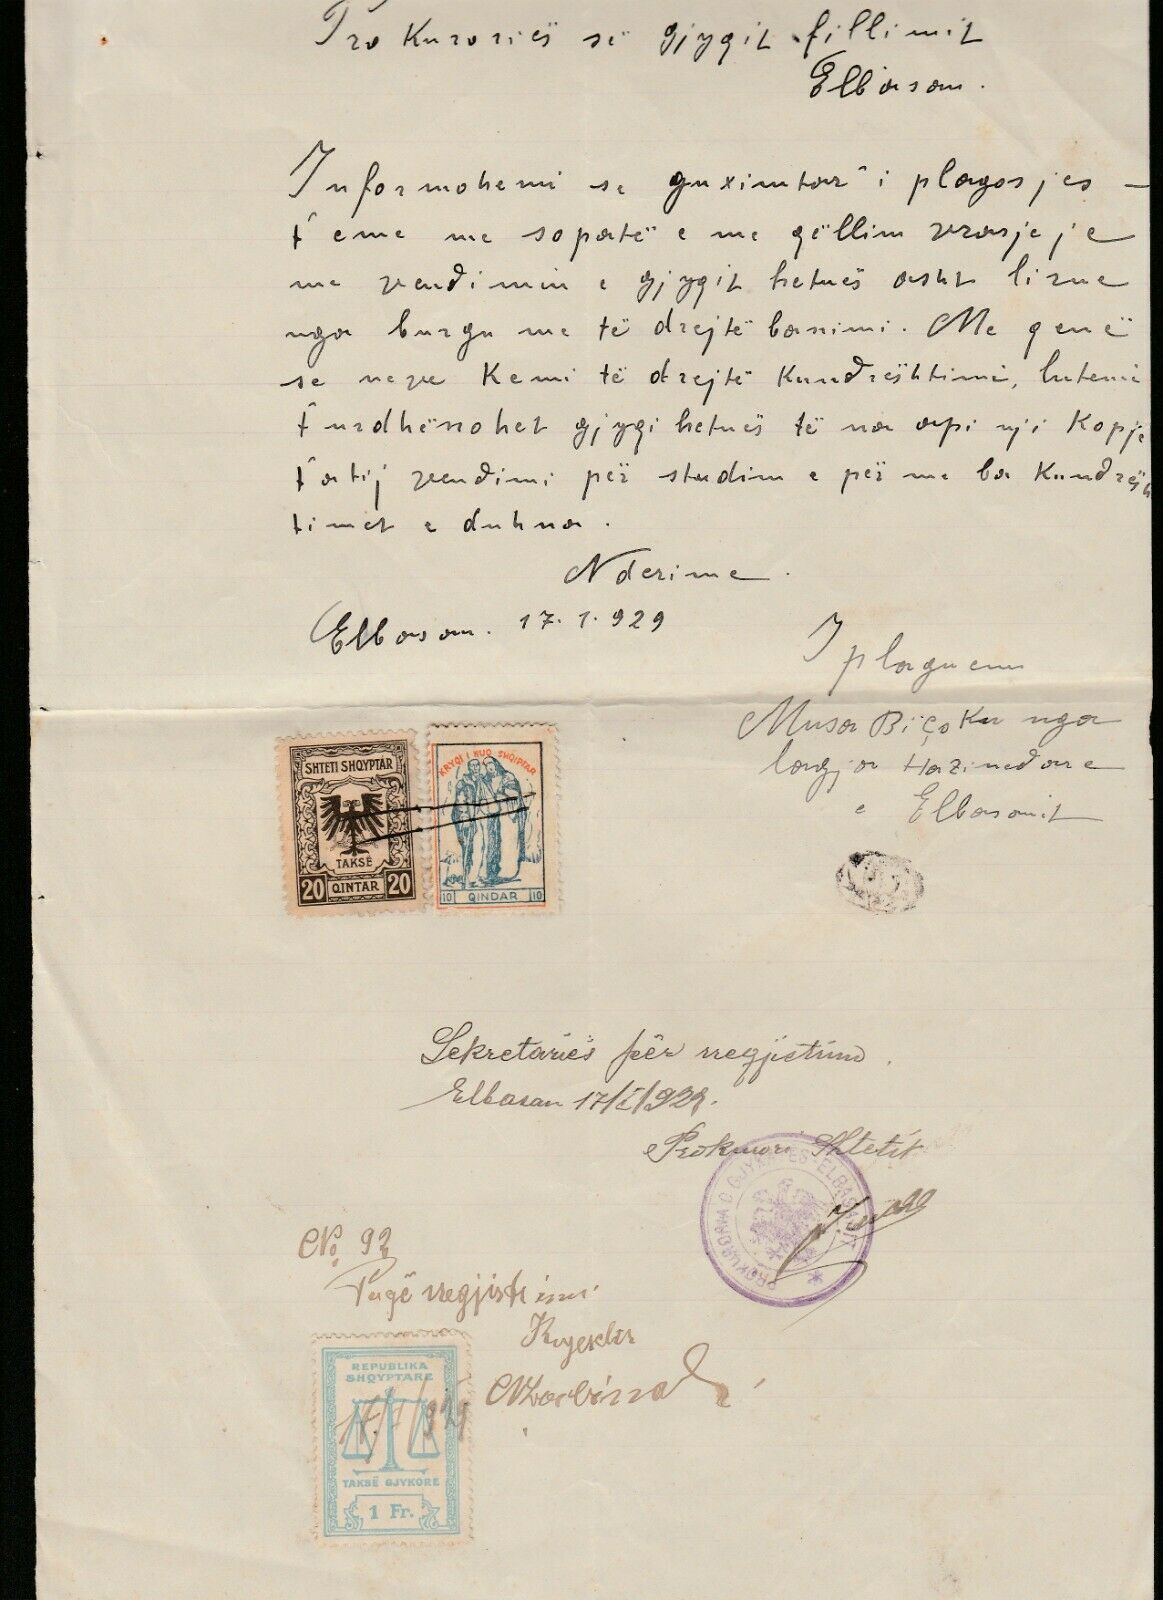 Prokuroriës së gjyqit fillimit
Elbasan.
Informohemi se guximtar i plagosjes
t'eme me sopatë e me qëllim vrasje je
me vendimin e gjyqit hetuës asht lirue
nga burgu me të drejtë banimi. Me qenë
se neve kemi të drejtë kundrështimi, lutemi
t'urdhënohet gjyqi hetuës të na api nji kopje
t'atij vendimi për studim e për me ba kundrësh
timet e duhna.
Nderime.
Elbasan. 17.1.929
I plaguemi
Musa Biçaku nga
lagja Hazinedare
e Elbasanit
SHTETI SHQYPTAR
TAKSË
20 QINTAR 20
KRYQI I KUQ SHQIPTAR
10 QINDAR 10
Sekretariës për regjistrim.
Elbasan 17/I/929.
Prokurori Shtetit
PROKURORIA E GJYKATËS ELBASANIT
No. 92
Pagë regjistrimi
REPUBLIKA
SHQYPTARE
17/1/929
TAKSË GJYKORE
1 Fr.